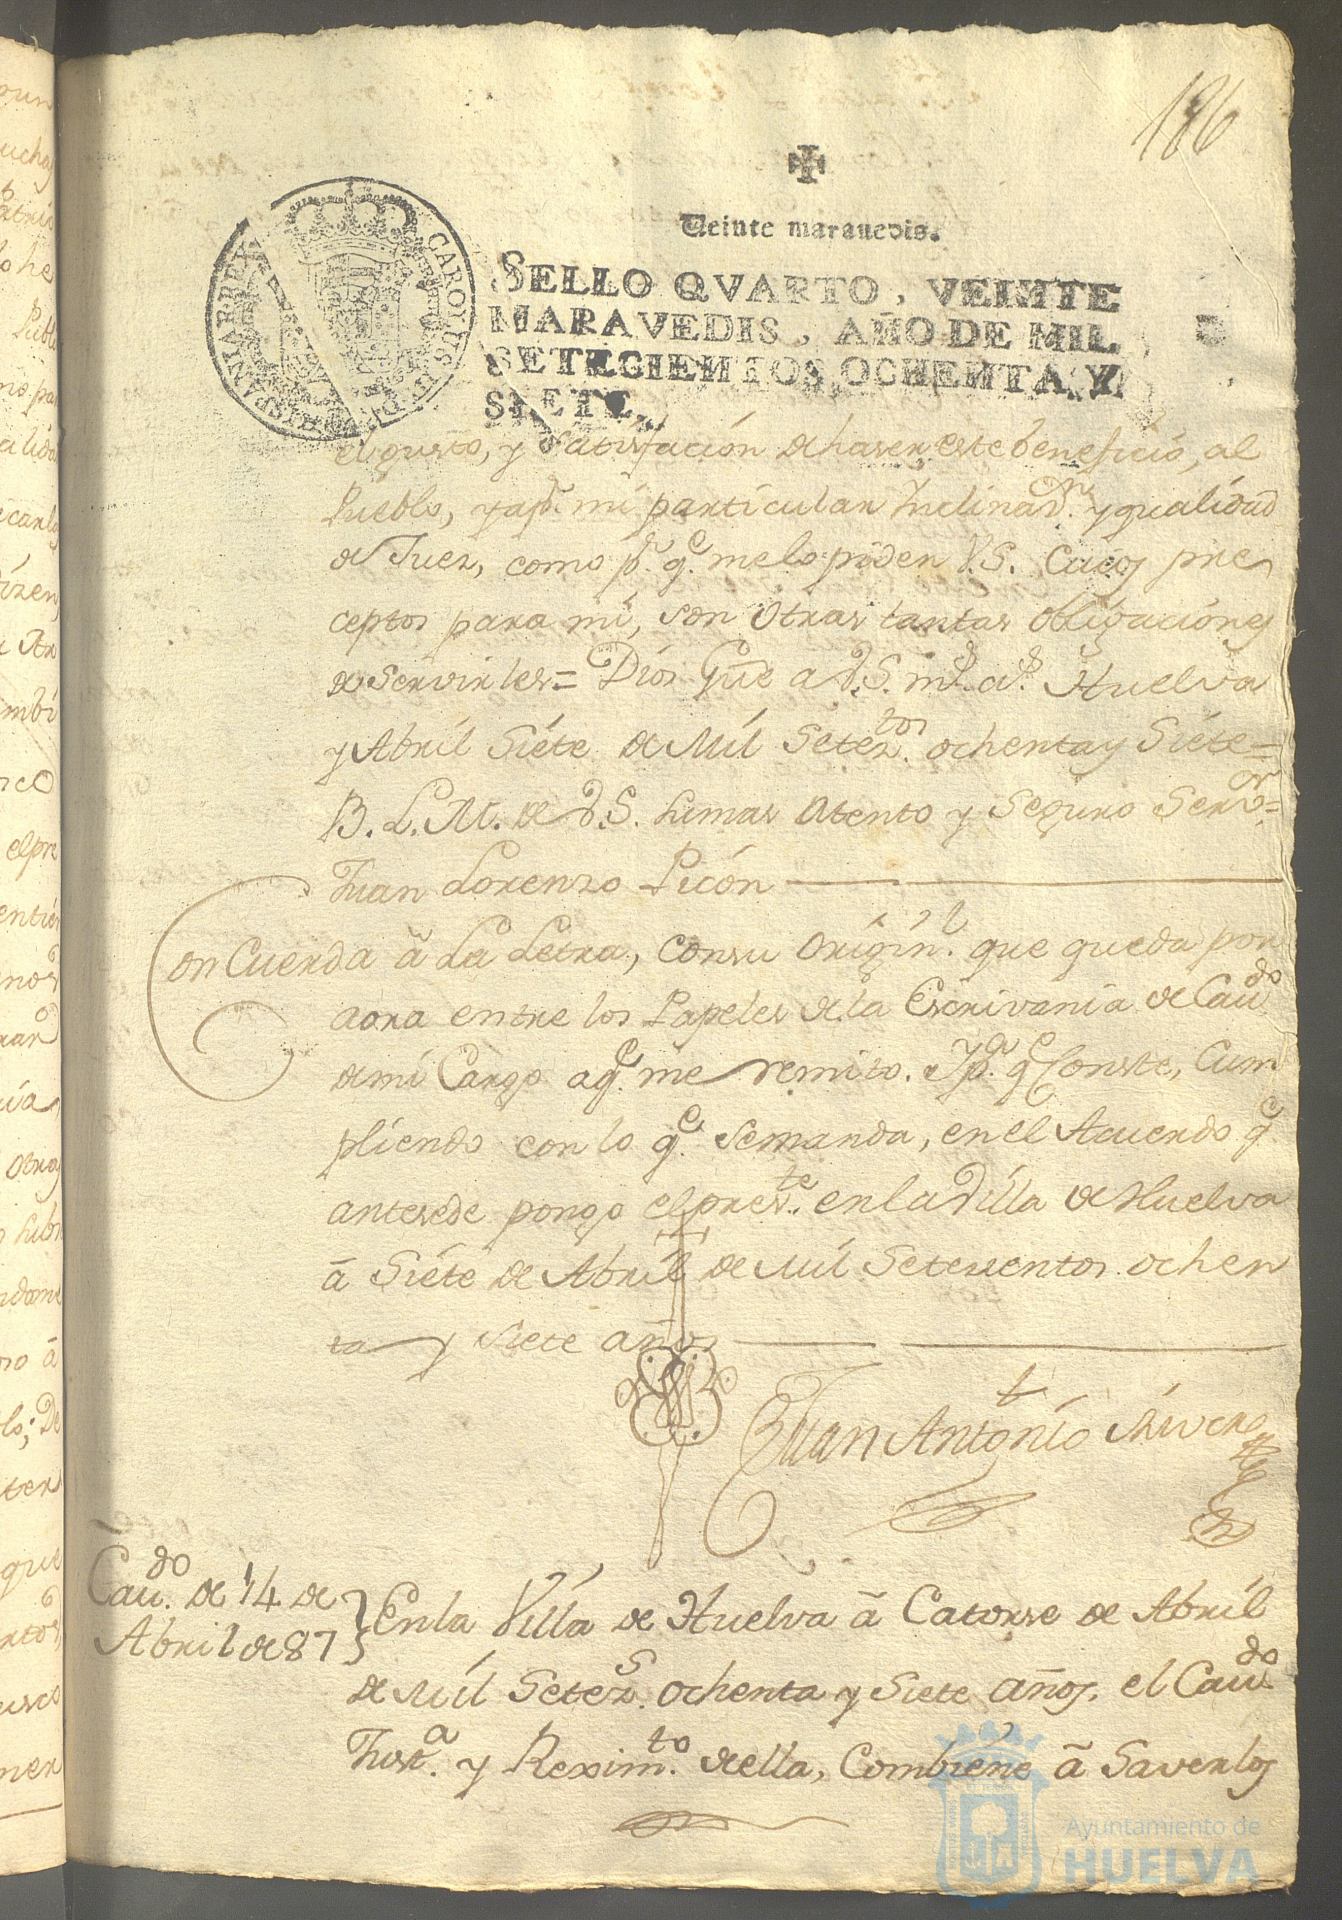 186
Veinte maravedis.
SELLO QVARTO, VEINTE
MARAVEDIS, AÑO DE MIL
SETECIENTOS, OCHENTA Y
SIETE.
CAROLUS III D G HISPANIAR REX
el gusto, y satisfacion de haser este beneficio, al
Pueblo, y a mi particular Inclinas.on y qualidad
de Juez, como p.r q.e me lo piden V.S. Cuios pre
ceptos para mi, son otras tantas obligaciones
de servirles = Dios Gue a V.S. m.s a.s Huelva
y Abril Siete de Mil Setez.tos ochenta y Siete =
B. L. M. de V.S. su mas Atento y Seguro Serv.or =
Juan Lorenzo Picón
Con Cuerda â La Letra, con su Origin.l que queda por
aora entre los Papeles de la Escrivania de Cav.do
de mi Cargo a q.e me remito. Y p.a q.e Conste, Cum
pliendo con lo q.e se manda, en el Acuerdo q.e
antesede pongo el pres.te en la Villa de Huelva
â Siete de Abril de Mil Setesientos ochen
ta y Siete años
Juan Antonio Rivera
Cav.do de 14 de
Abril de 87
En la Villa de Huelva â Catorse de Abril
de Mil Setez.s ochenta y Siete años, el Cav.do
Just.a y Rexim.to de ella, Combiene â Saverlos
Ayuntamiento de
HUELVA